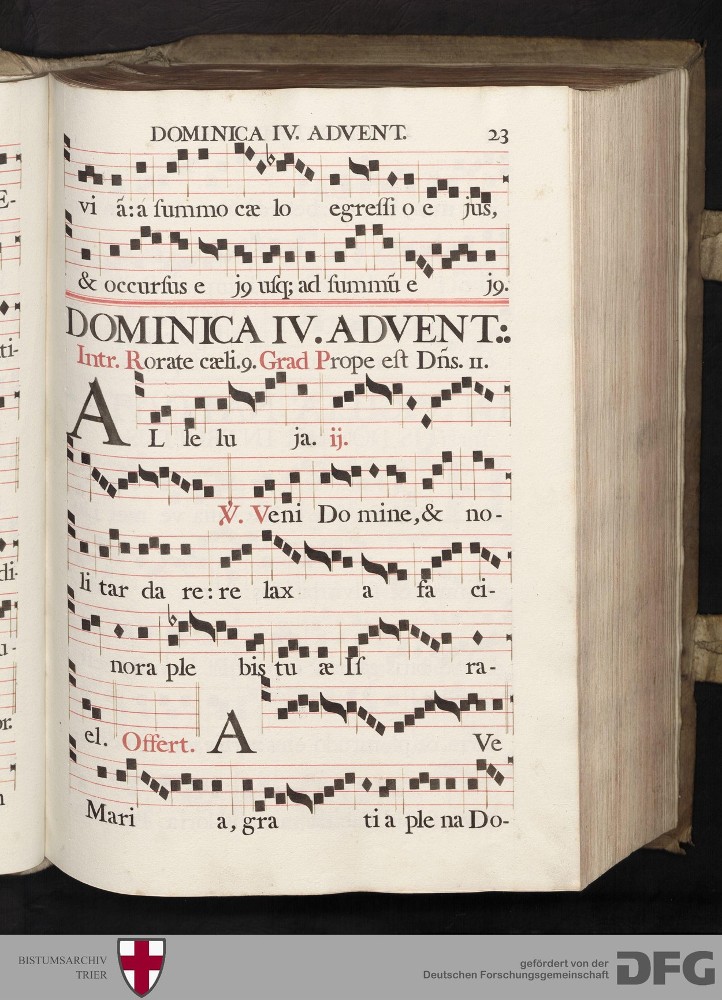 DOMINICA IV. ADVENT. 23
vi ã: á ſummo cæ lo egreſſi o e jus,
& occurſus e j9 uſq; ad ſummũ e j9.
DOMINICA IV. ADVENT:.
Intr. Rorate cæli. 9. Grad Prope eſt Dñs. 11.
AL le lu ja. ij.
℣. Veni Do mine, & no-
li tar da re: re lax a fa ci-
nora ple bis tu æ Iſ ra-
el. Offert. A Ve
Mari a, gra ti a ple na Do-
E-
ti-
di-
u-
or.
n
BISTUMSARCHIV
TRIER
gefördert von der
Deutschen Forschungsgemeinschaft
DFG